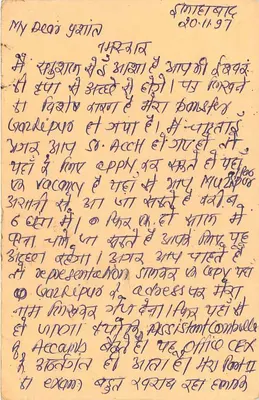 इलाहाबाद
20.11.97
My Dear प्रशांत
नमस्कार
मैं सकुशल से हूँ आशा है आप भी ईश्वर
की कृपा से अच्छे से होंगे। पत्र लिखने
का विशेष कारण है मेरा transfer
Gazipur हो गया है। मैं चाहता हूँ
अगर आप Sr. Acctt हो गए हों तो
यहाँ के लिए apply कर सकते हैं यहाँ
एक vacancy है यहाँ से आप
आसानी से आ जा सकते हैं करीब
6 घंटा में। फिर एक दो साल में
पटना चले जा सकते हैं आपके लिए यह
अच्छा रहेगा। अगर आप चाहते हैं
तो representation लिखकर एक copy
Gazipur के address पर मेरा
नाम लिखकर भेज देना। फिर यहाँ से
हो जाएगा क्योंकि Assistant Controller
of Accounts बैठते हैं। यह office CEX
के अन्तर्गत ही आता है। मेरा Part II
का exam बहुत खराब रहा